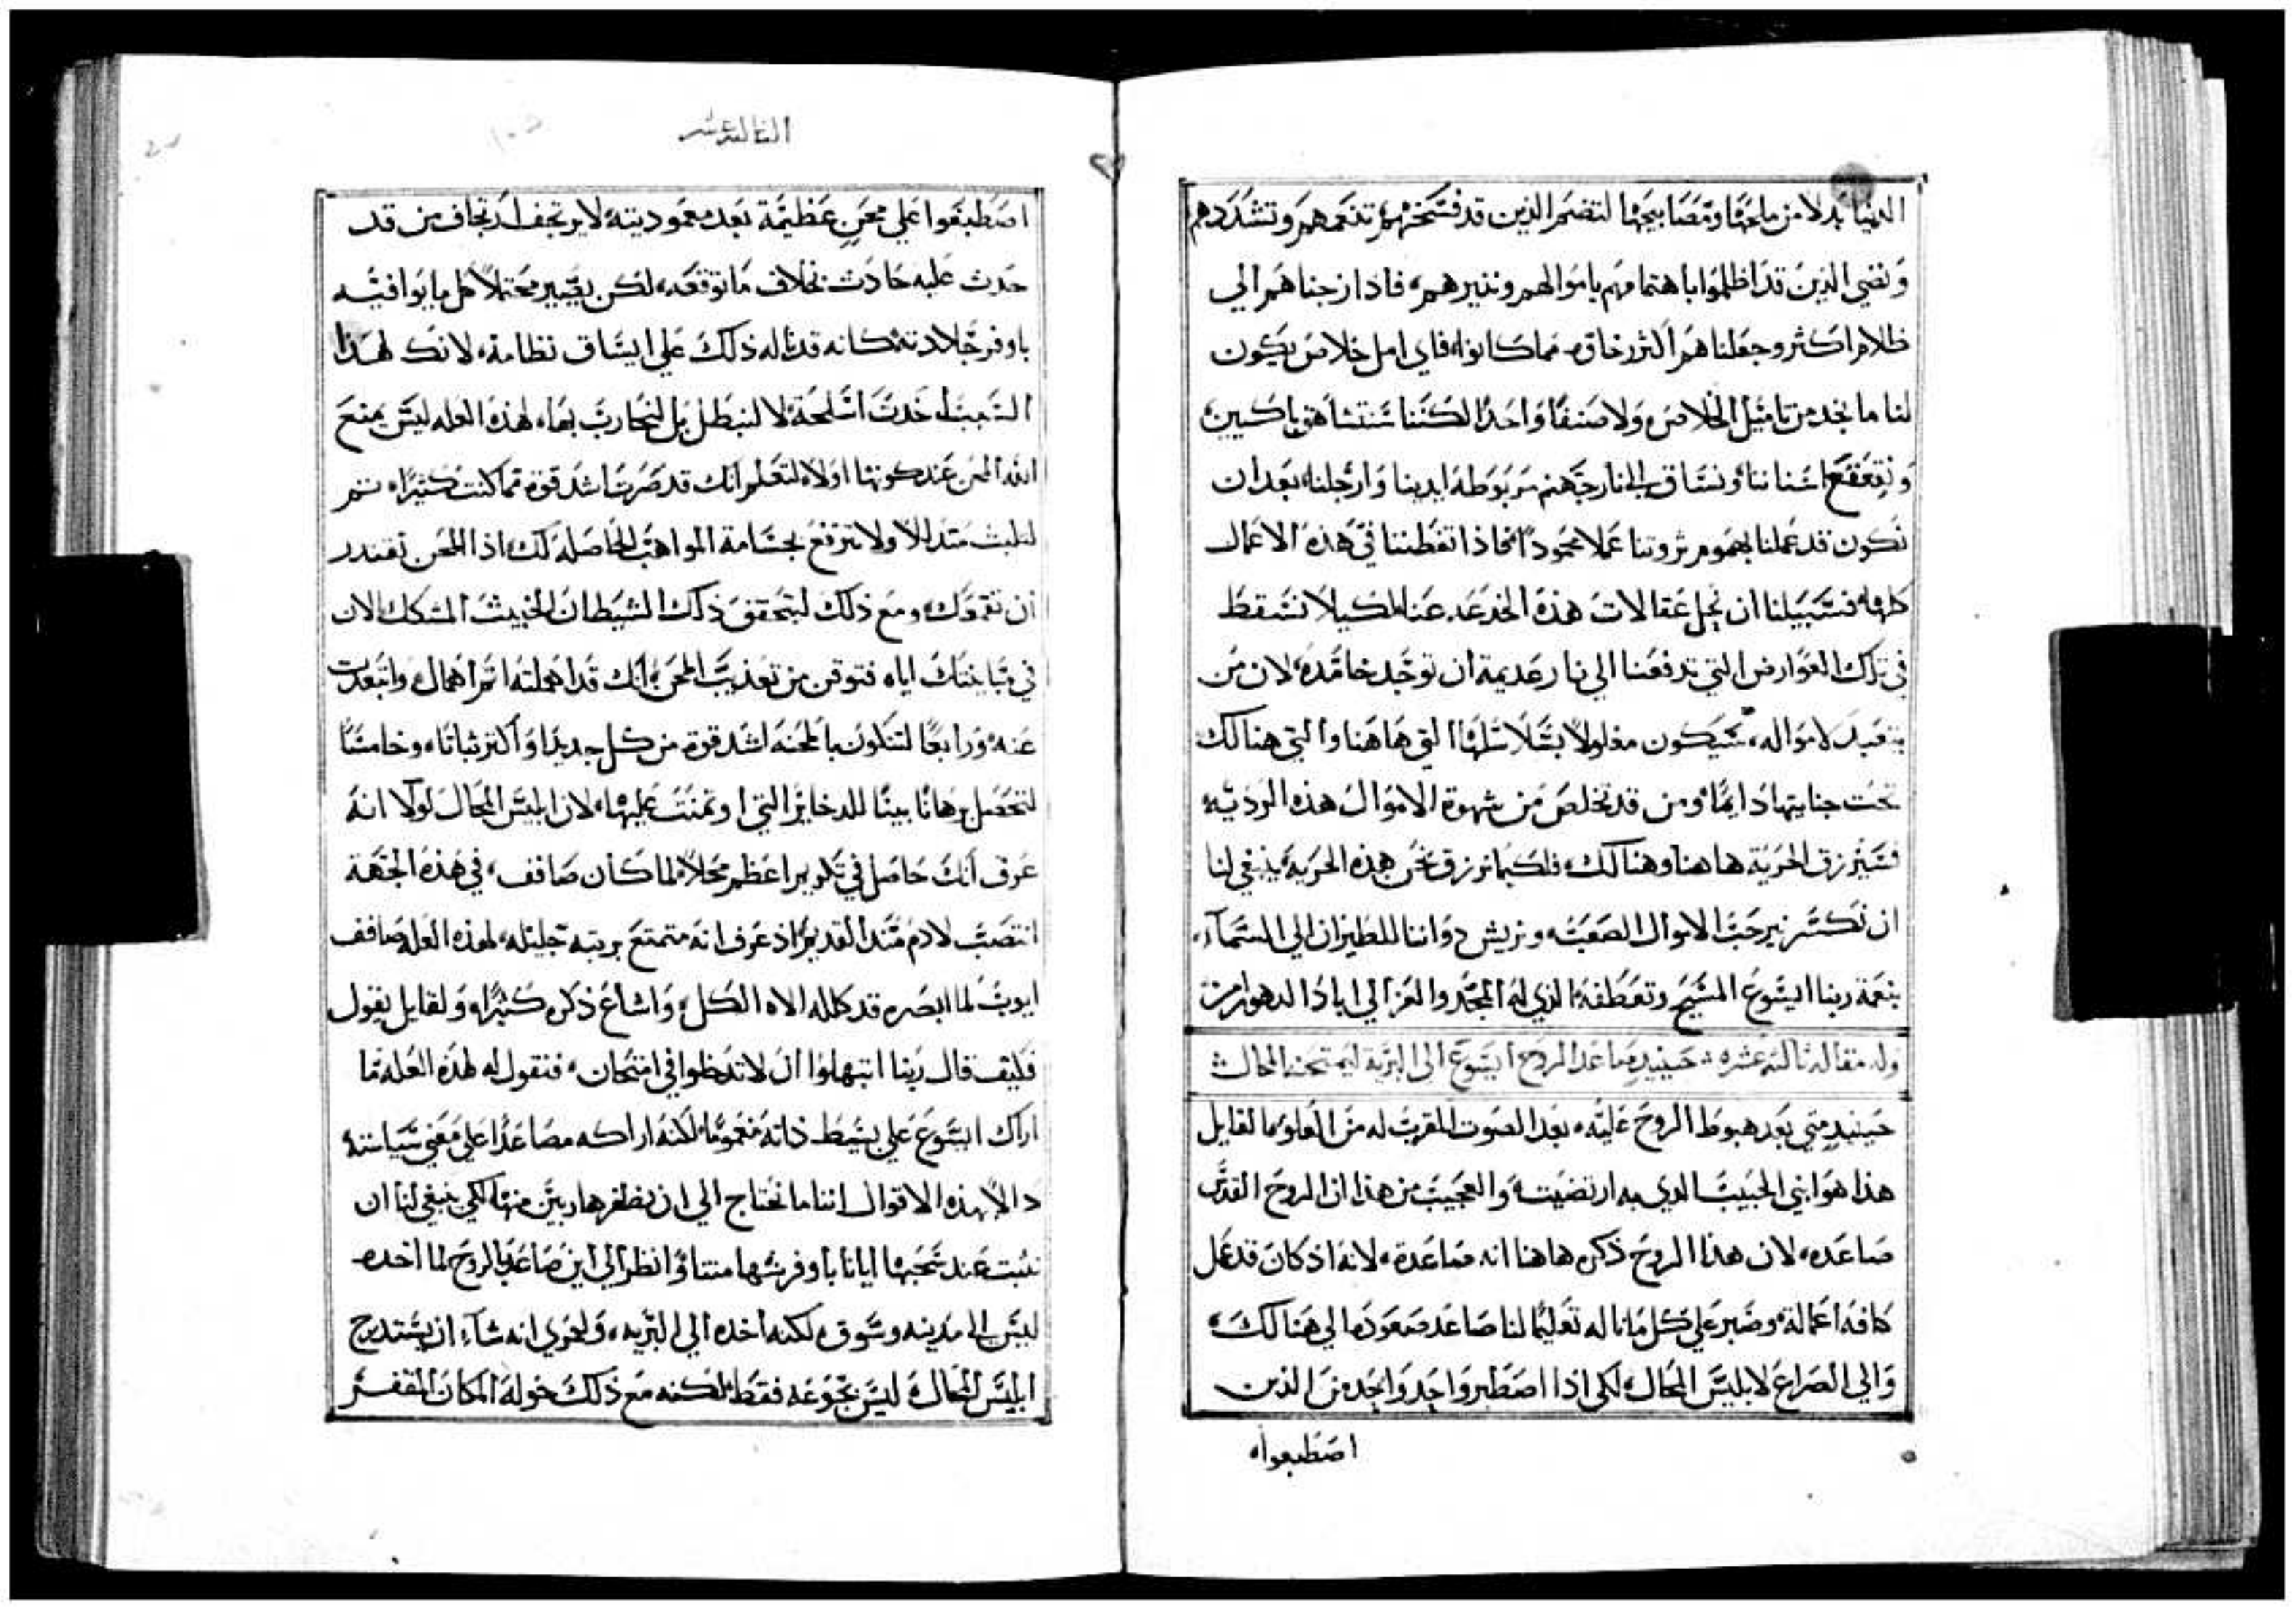 الدنيا بدلا من ملحها ومصابيحها لتضم الذين قد فسختهم تنعمهم وتشددهم
ونضي الذين قد اظلموا باهتمامهم باموالهم ونذيرهم، فاذا زجناهم الي
ظلام اكثر وجعلناهم اكثر رخاوة مما كانوا، فاي امل خلاص يكون
لنا ما نجد من تاميل الخلاص ولا صنفا واحدا لكننا سنتشاهق باكين
وتقعقع اسناننا ونساق الي نار جهنم مربوطة ايدينا وارجلنا، بعد ان
نكون قد عملنا بهموم ثروتنا عملا محمودا فاذا تفطننا في هذه الاعمال
كلها، فسبيلنا ان نحل عقالات هذه الخدعه عنا، لكيلا نسقط
في تلك العوارض التي تدفعنا الي نار عديمة ان توجد خامدة، لان من
يتعبد لامواله، سيكون مغلولا بسلاسلها التي هاهنا والتي هنالك
تحت جنايتها دايما، ومن قد تخلص من شهوة الاموال هذه الرديه
فسيرزق الحرية هاهنا وهنالك، فلكيما نرزق نحن هذه الحرية، ينبغي لنا
ان نكسر نير حب الاموال الصعبه ونريش ذواتنا للطيران الي السمآء،
بنعمة ربنا ايسوع المسيح وتعطفه الذي له المجد والعز الي اباد الدهور امين
وله مقاله ثالثه عشره: حينيذ صاعد الروح ايسوع الى البرية ليمتحنه المحال
حينيذ متي بعد هبوط الروح عليه، بعد الصوت المقرب له من العلو بما لقايل
هذا هو ابني الحبيب الذي به ارتضيت، والعجيب من هذا ان الروح القدس
صاعده، لان هذا الروح ذكره هاهنا انه صاعدة، لانه اذ كان قد عمل
كافه اعماله، وصبر علي كل ما ناله تعليما لنا صاعد صعوده الي هنالك،
والي الصراع لابليس المحال، لكي اذا اصطبر واحد واحد من الذين
اصطبغوا
الثالثه عشر
اصطبغوا علي محن عظيمة بعد معموديته لا يرتجف ارتجاف من قد
حدث عليه حادث بخلاف ما توقعه، لكن يصير محتملا كل ما يوافيه
باوفر جلادته كانه قد ناله ذلك علي ايساق نظامه، لانك لهذا
السبب اخذت اسلحة لا لتبطل بل لتحارب بها، لهذه العله ليس يمنع
الله المحن عند كونها اولا، لتعلم انك قد صرت اشد قوة مما كنت كثيرا، ثم
لتلبث متذللا ولا تترفع بجسامة المواهب الحاصلة لك، اذ المحن تقتدر
ان تقمعك، ومع ذلك ليتحقق ذلك الشيطان الخبيث المشكك الان
في مباينتك اياه فتوقن من تعذيب المحن، انك قد اهملته اتم اهمال، وابتعدت
عنه، ورابعا لتكون بالمحنه اشد قوة من كل حديد واكثر ثباتا، وخامسا
لتحصل برهانا بينا للدخاير التي اوتمنت عليها، لان ابليس المحال لولا انه
عرف انك حاصل في تكريم اعظم محلا، لما كان صاقف، في هذه الجهة
انتصب لادم منذ القديم، اذ عرف انه متمتع برتبه جليله، لهذه العله صاقف
ايوب لما ابصره قد كلله الاه الكل، واشاع ذكره كثيرا، ولقايل يقول
فكيف قال ربنا ابتهلوا ال لا تدخلوا في امتحان، فنقول له لهذه العله ما
اراك ايسوع علي بسيط ذاته مغموما، لكنه اراكه مصاعدا علي معني سياسته
دالا بهذه الاقوال اننا ما نحتاج الي ان نطفر هاربين منها، لكي ينبغي لنا ان
نثبت عند سحبها ايانا باوفر شهامتنا، وانظر الي اين صاعد الروح لما اخده
ليس الي مدينه وسوق، لكنه اخده الي البريه، ولعمري انه شاء ان يستدرج
ابليس المحال، ليس بجوعه فقط، لكنه مع ذلك خوله المكان المقفر